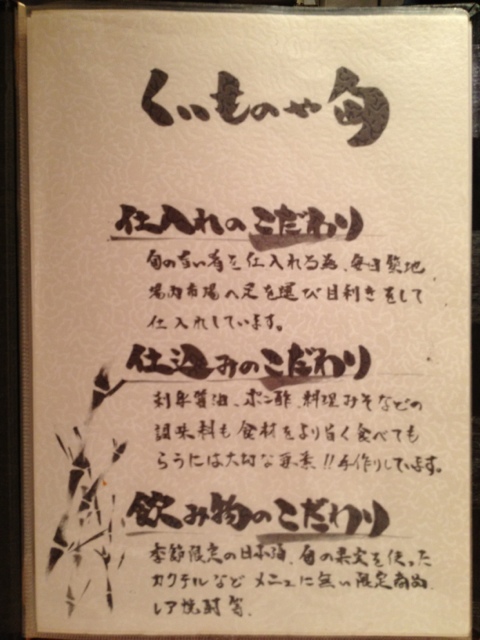 くいものや 旬
仕入れのこだわり
旬の良い肴を仕入れる為、毎日築地
場内市場へ足を運び目利きをして
仕入れしています。
仕込みのこだわり
刺身醤油、ポン酢、料理みそなどの
調味料も食材をより旨く食べても
らうには大切な要素!!手作りしています。
飲み物のこだわり
季節限定の日本酒、旬の果実を使った
カクテルなどメニューに無い限定商品
レア焼酎等.